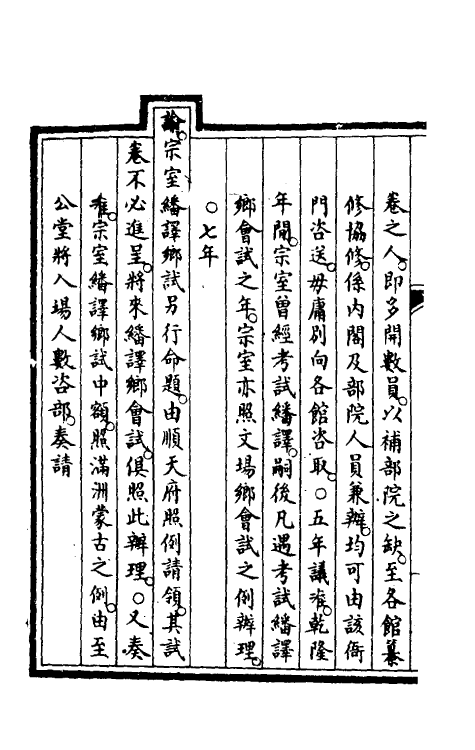 卷之人。即多開數員。以補部院之缺。至各館纂
修協修。係內閣及部院人員兼辦。均可由該衙
門咨送。毋庸別向各館咨取。○五年議准。乾隆
年間。宗室曾經考試繙譯。嗣後凡遇考試繙譯
鄉會試之年。宗室亦照文場鄉會試之例辦理。
○七年
諭。宗室繙譯鄉試。另行命題。由順天府照例請領。其試
卷不必進呈。將來繙譯鄉會試。俱照此辦理。○又奏
准。宗室繙譯鄉試中額。照滿洲蒙古之例。由至
公堂將入場人數咨部。奏請